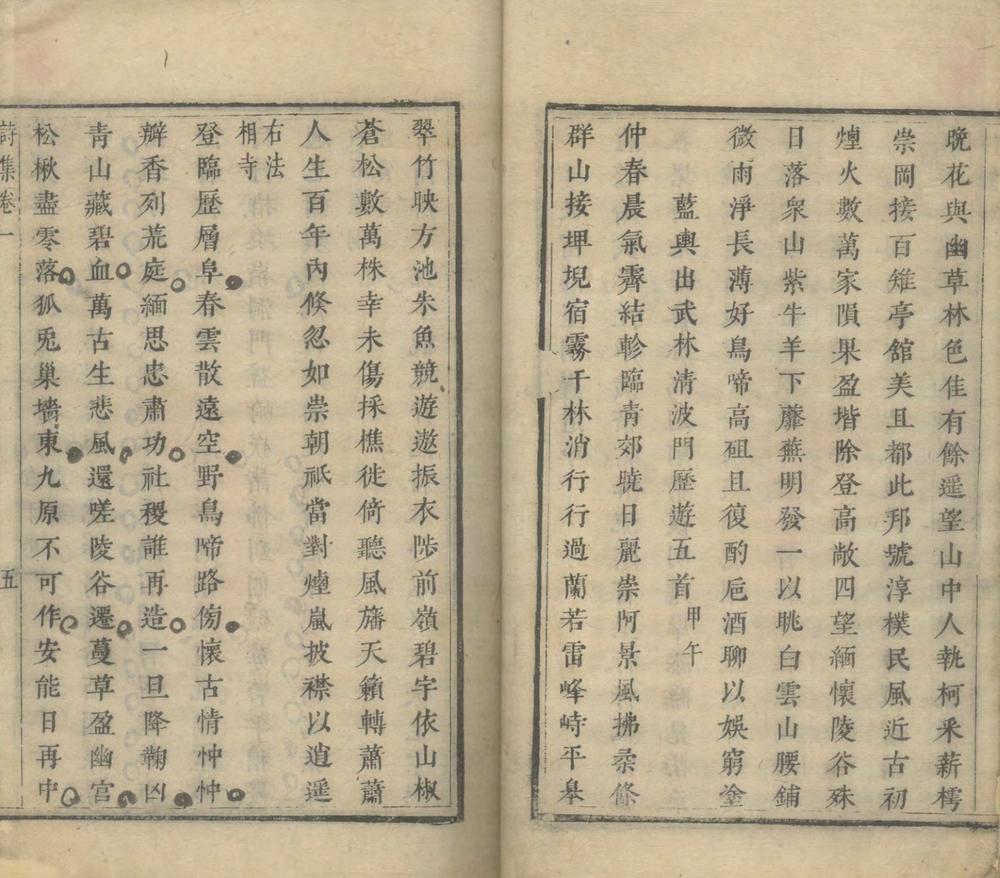 晚花與幽草林色佳有餘遥望山中人執柯采薪樗
崇岡接百雉亭舘美且都此邦號淳樸民風近古初
煙火數萬家隕果盈堦除登高敞四望緬懷陵谷殊
日落衆山紫牛羊下蘼蕪明發一以眺白雲山腰鋪
微雨淨長薄好鳥啼高砠且復酌巵酒聊以娛窮塗
藍輿出武林清波門歷遊五首甲午
仲春晨氣霽結軫臨青郊曉日麗崇阿景風拂柔條
群山接埤堄宿霧千林消行行過蘭若雷峰峙平皋
翠竹映方池朱魚競遊遨振衣陟前嶺碧宇依山椒
蒼松數萬株幸未傷採樵徙倚聽風旛天籟轉蕭蕭
人生百年内倏忽如崇朝祇當對煙嵐披襟以逍遥
右法相寺
登臨歷層阜春雲散遠空野鳥啼路傍懷古情忡忡
瓣香列荒庭緬思忠肅功社稷誰再造一旦降鞠凶
青山藏碧血萬古生悲風還嗟陵谷遷蔓草盈幽宮
松楸盡零落狐兎巢墻東九原不可作安能日再中
詩集卷一
五